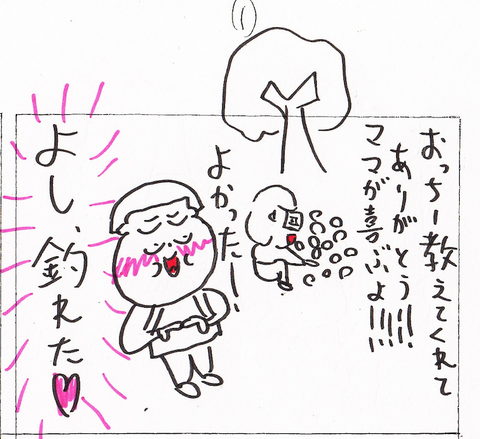 ①
おっちー教えてくれて
ありがとう!!!!
ママが喜ぶよ!!!!
よかったー!
よし、釣れた♥